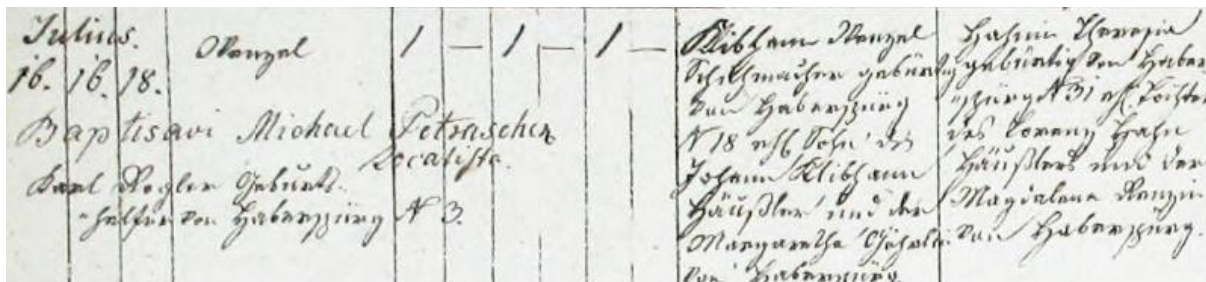 Julius.
16. 16. 18.
Wenzel
1 — 1 — 1 —
Baptisavi Michael Petraschek
Localista.
Karl Kogler Geburts-
helfer von Haberspürg N 3.
Klibhann Wenzel
Schuhmacher gebürtig
von Haberspürg
N 18 ehl. Sohn des
Johann Klibhann
Häußler und der
Margaretha
von Haberspürg
Hahnin Theresia
gebürtig von Haber-
spürg N 31 ehl. Tochter
des Lorenz Hahn
Häußlers und der
Magdalena
von Haberspürg.